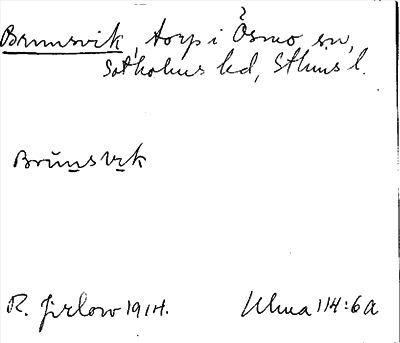 Brunsvik, torp i Ösmo sn,
Sotholms hd, Sthms l.
Brŭnsvɩk
R. Jirlow 1914.
Ulma 114:6a